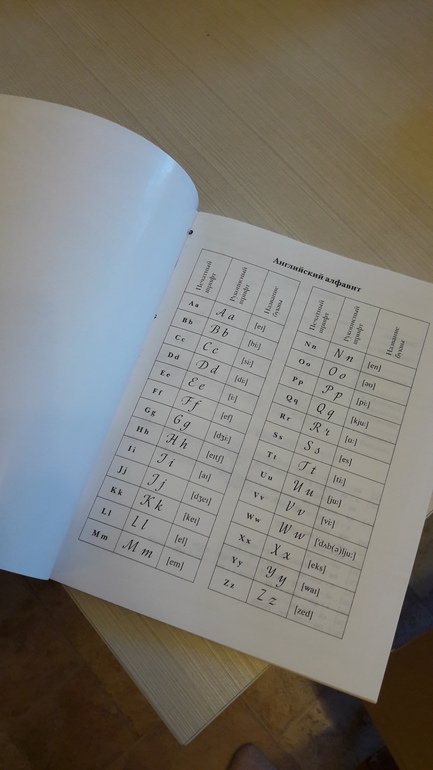 Английский алфавит
Печатный шрифт Рукописный шрифт Название буквы
A a A a [eı]
B b B b [bi:]
C c C c [si:]
D d D d [di:]
E e E e [i:]
F f F f [ef]
G g G g [dʒi:]
H h H h [eıtʃ]
I i I i [aı]
J j J j [dʒeı]
K k K k [keı]
L l L l [el]
M m M m [em]
Печатный шрифт Рукописный шрифт Название буквы
N n N n [en]
O o O o [əʊ]
P p P p [pi:]
Q q Q q [kju:]
R r R r [ɑ:]
S s S s [es]
T t T t [ti:]
U u U u [ju:]
V v V v [vi:]
W w W w ['dʌb(ə)lju:]
X x X x [eks]
Y y Y y [waı]
Z z Z z [zed]